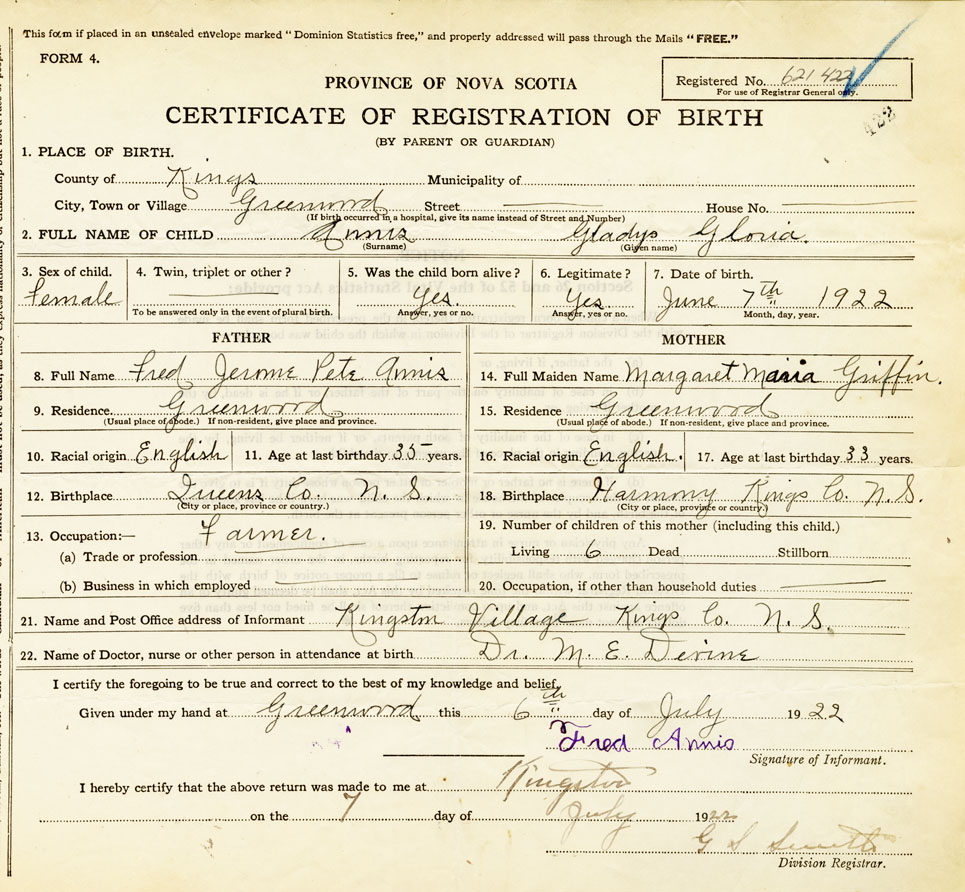 This form if placed in an unsealed envelope marked "Dominion Statistics free," and properly addressed will pass through the Mails "FREE."
FORM 4.
Registered No. 621422
For use of Registrar General only.
422
PROVINCE OF NOVA SCOTIA
CERTIFICATE OF REGISTRATION OF BIRTH
(BY PARENT OR GUARDIAN)
1. PLACE OF BIRTH.
County of Kings Municipality of
City, Town or Village Greenwood Street House No.
(If birth occurred in a hospital, give its name instead of Street and Number)
2. FULL NAME OF CHILD Annis Gladys Gloria.
(Surname) (Given name)
3. Sex of child. 4. Twin, triplet or other? 5. Was the child born alive? 6. Legitimate? 7. Date of birth.
Female Yes. Yes. June 7th 1922
To be answered only in the event of plural birth. Answer, yes or no. Answer, yes or no. Month, day, year.
FATHER MOTHER
8. Full Name Fred Jerome Pete Annis 14. Full Maiden Name Margaret Maria Griffin.
9. Residence Greenwood 15. Residence Greenwood
(Usual place of abode.) If non-resident, give place and province. (Usual place of abode.) If non-resident, give place and province.
10. Racial origin English 11. Age at last birthday 35 years. 16. Racial origin English. 17. Age at last birthday 33 years.
12. Birthplace Queens Co. N. S. 18. Birthplace Harmony Kings Co. N. S.
(City or place, province or country.) (City or place, province or country.)
13. Occupation:— Farmer. 19. Number of children of this mother (including this child.)
(a) Trade or profession Living 6 Dead Stillborn
(b) Business in which employed 20. Occupation, if other than household duties
21. Name and Post Office address of Informant Kingston Village Kings Co. N. S.
22. Name of Doctor, nurse or other person in attendance at birth Dr. M. E. Devine
I certify the foregoing to be true and correct to the best of my knowledge and belief.
Given under my hand at Greenwood this 6th day of July 1922
Fred Annis
Signature of Informant.
I hereby certify that the above return was made to me at Kingston
on the 7 day of July 1922
G S
Division Registrar.